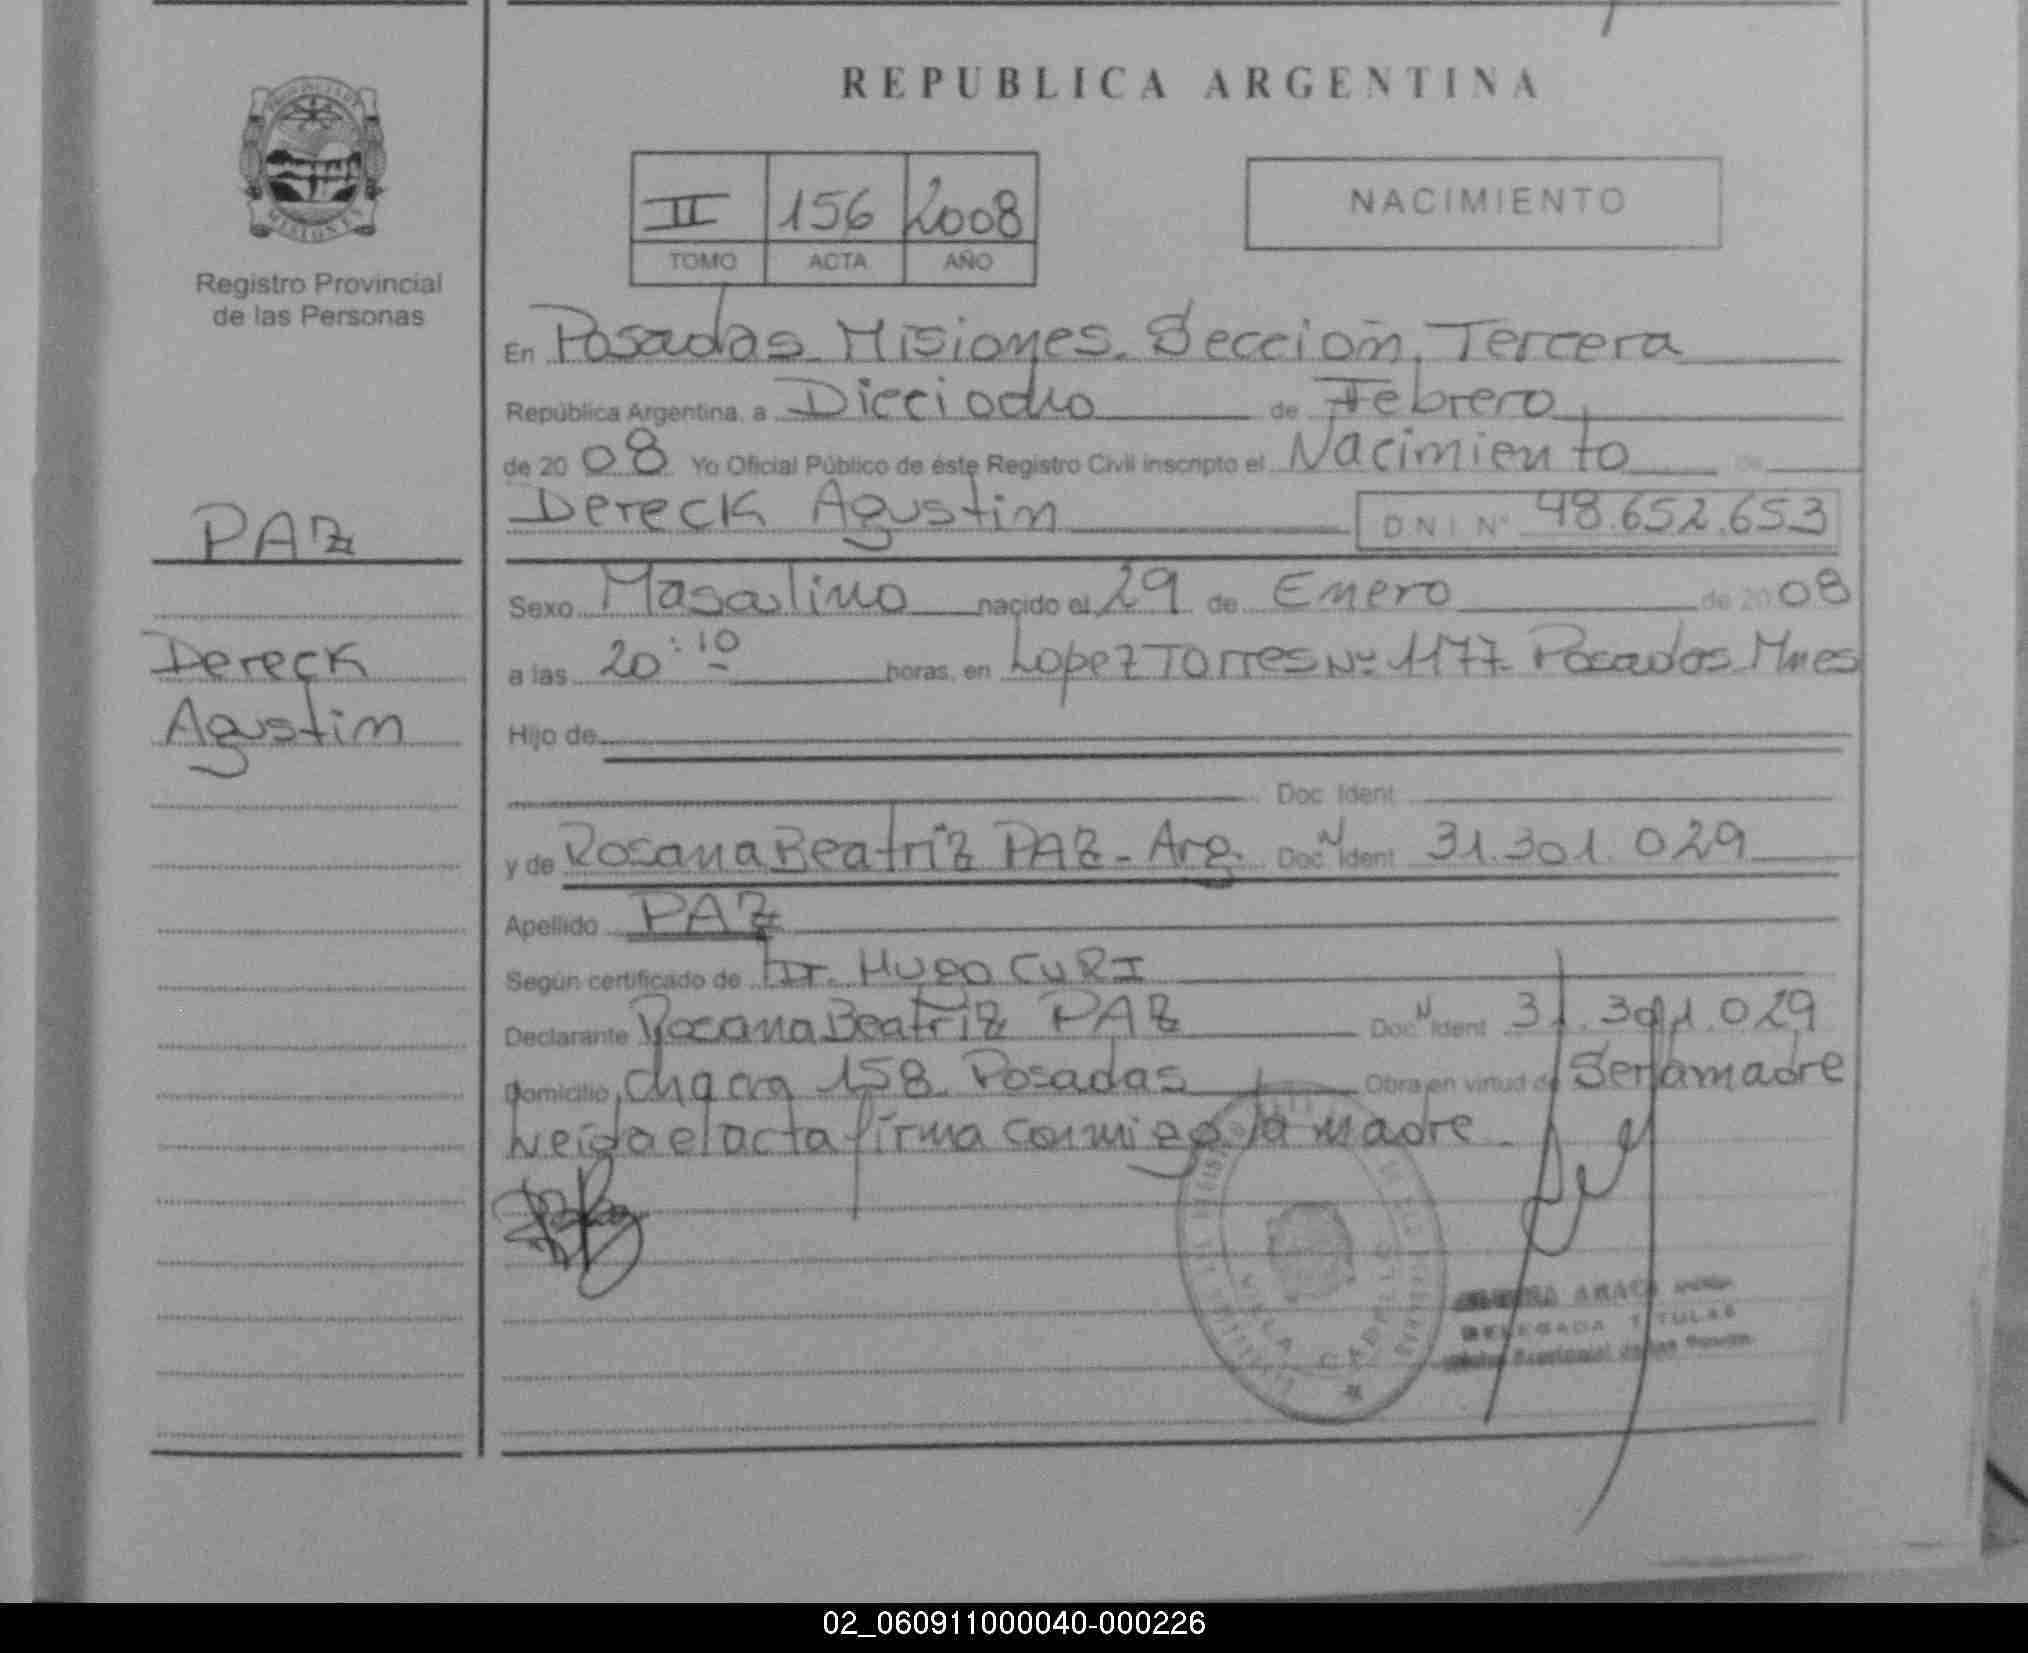 REPUBLICA ARGENTINA
II 156 2008
TOMO ACTA AÑO
NACIMIENTO
MISIONES
Registro Provincial
de las Personas
PAZ
Dereck
Agustin
En Posadas Misiones. Sección Tercera
República Argentina, a Dieciocho de Febrero
de 20 08 Yo Oficial Público de éste Registro Civil inscripto el Nacimiento de
Dereck Agustin DNI Nº 48.652.653
Sexo Masculino nacido el 29 de Enero de 20 08
a las 20:10 horas, en Lopez Torres Nº 1177 Posadas Mnes
Hijo de
Doc Ident
y de Rosana Beatriz PAZ - Arg. Doc N Ident 31.301.029
Apellido PAZ
Según certificado de Dr. Hugo CURI
Declarante Rosana Beatriz PAZ Doc N Ident 31.301.029
Domicilio Chacra 158 Posadas Obra en virtud de Ser la madre
Leida el acta firma conmigo la madre.
VILLA CABELLO
DELEGADA TITULAR
02_060911000040-000226